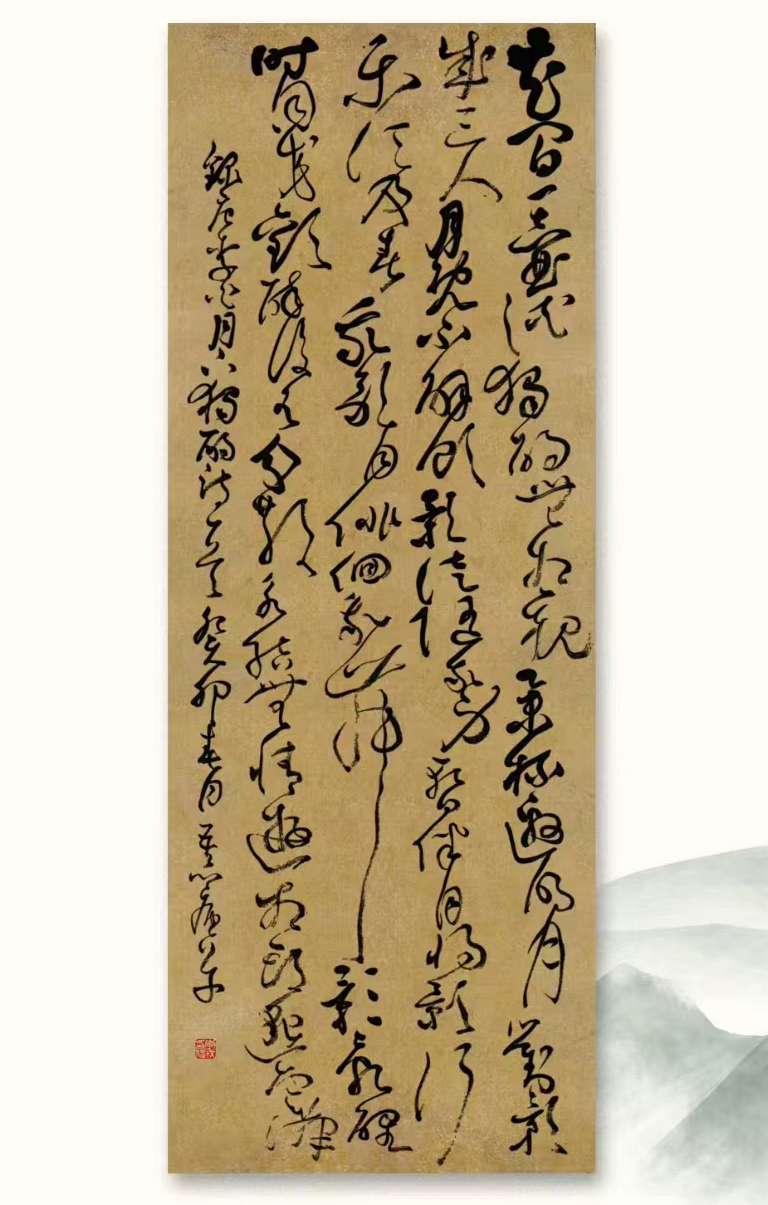 花間一壺酒獨酌無相親舉杯邀明月對影
成三人月既不解飲影徒隨我身暫伴月將影行
樂須及春我歌月徘徊我舞影零亂醒
時同交歡醉後各分散永結無情遊相期邈雲漢
錄唐李白月下獨酌詩一首癸卯春月